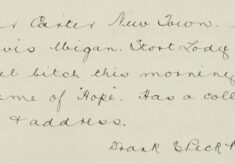 er Carter New Town.
vis Wigan. Stort Lodge
bitch this morning
ame of 'Hope'. Has a coll
& address.
Drank